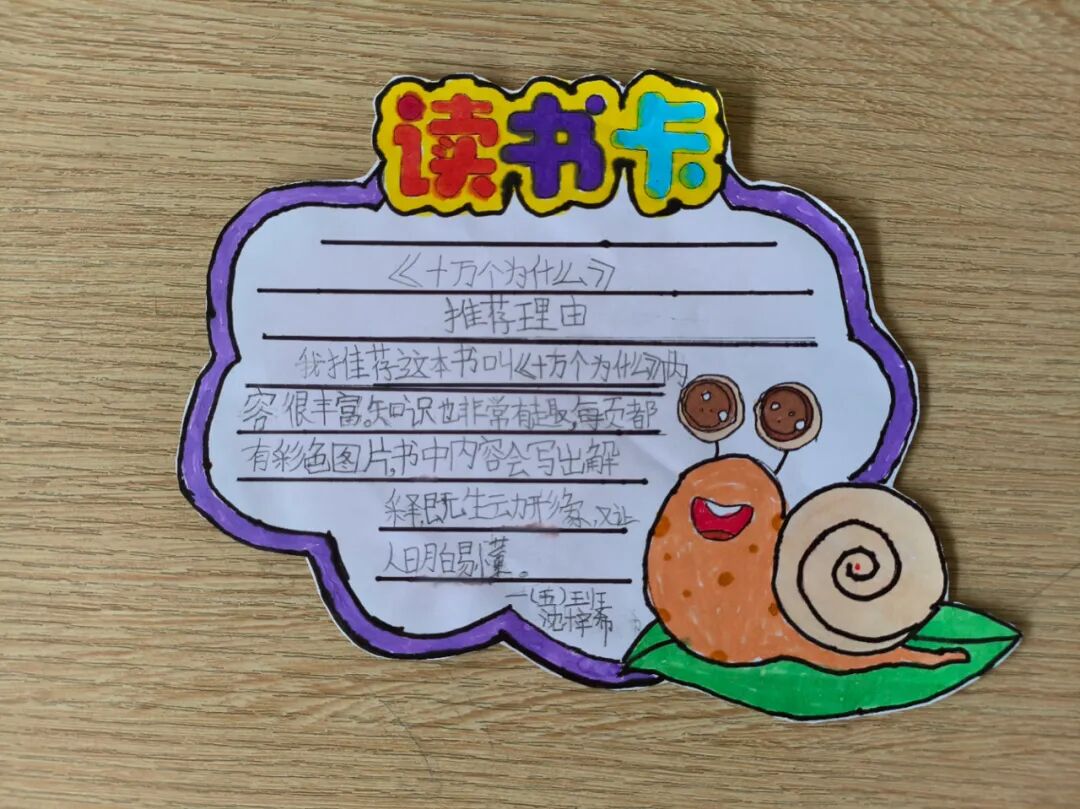 读书卡
《十万个为什么》
推荐理由
我推荐这本书叫《十万个为什么》内
容很丰富。知识也非常有趣,每页都
有彩色图片,书中内容会写出解
释,既生动形象,又让
人明白易懂。
一(五)王班
沈梓希